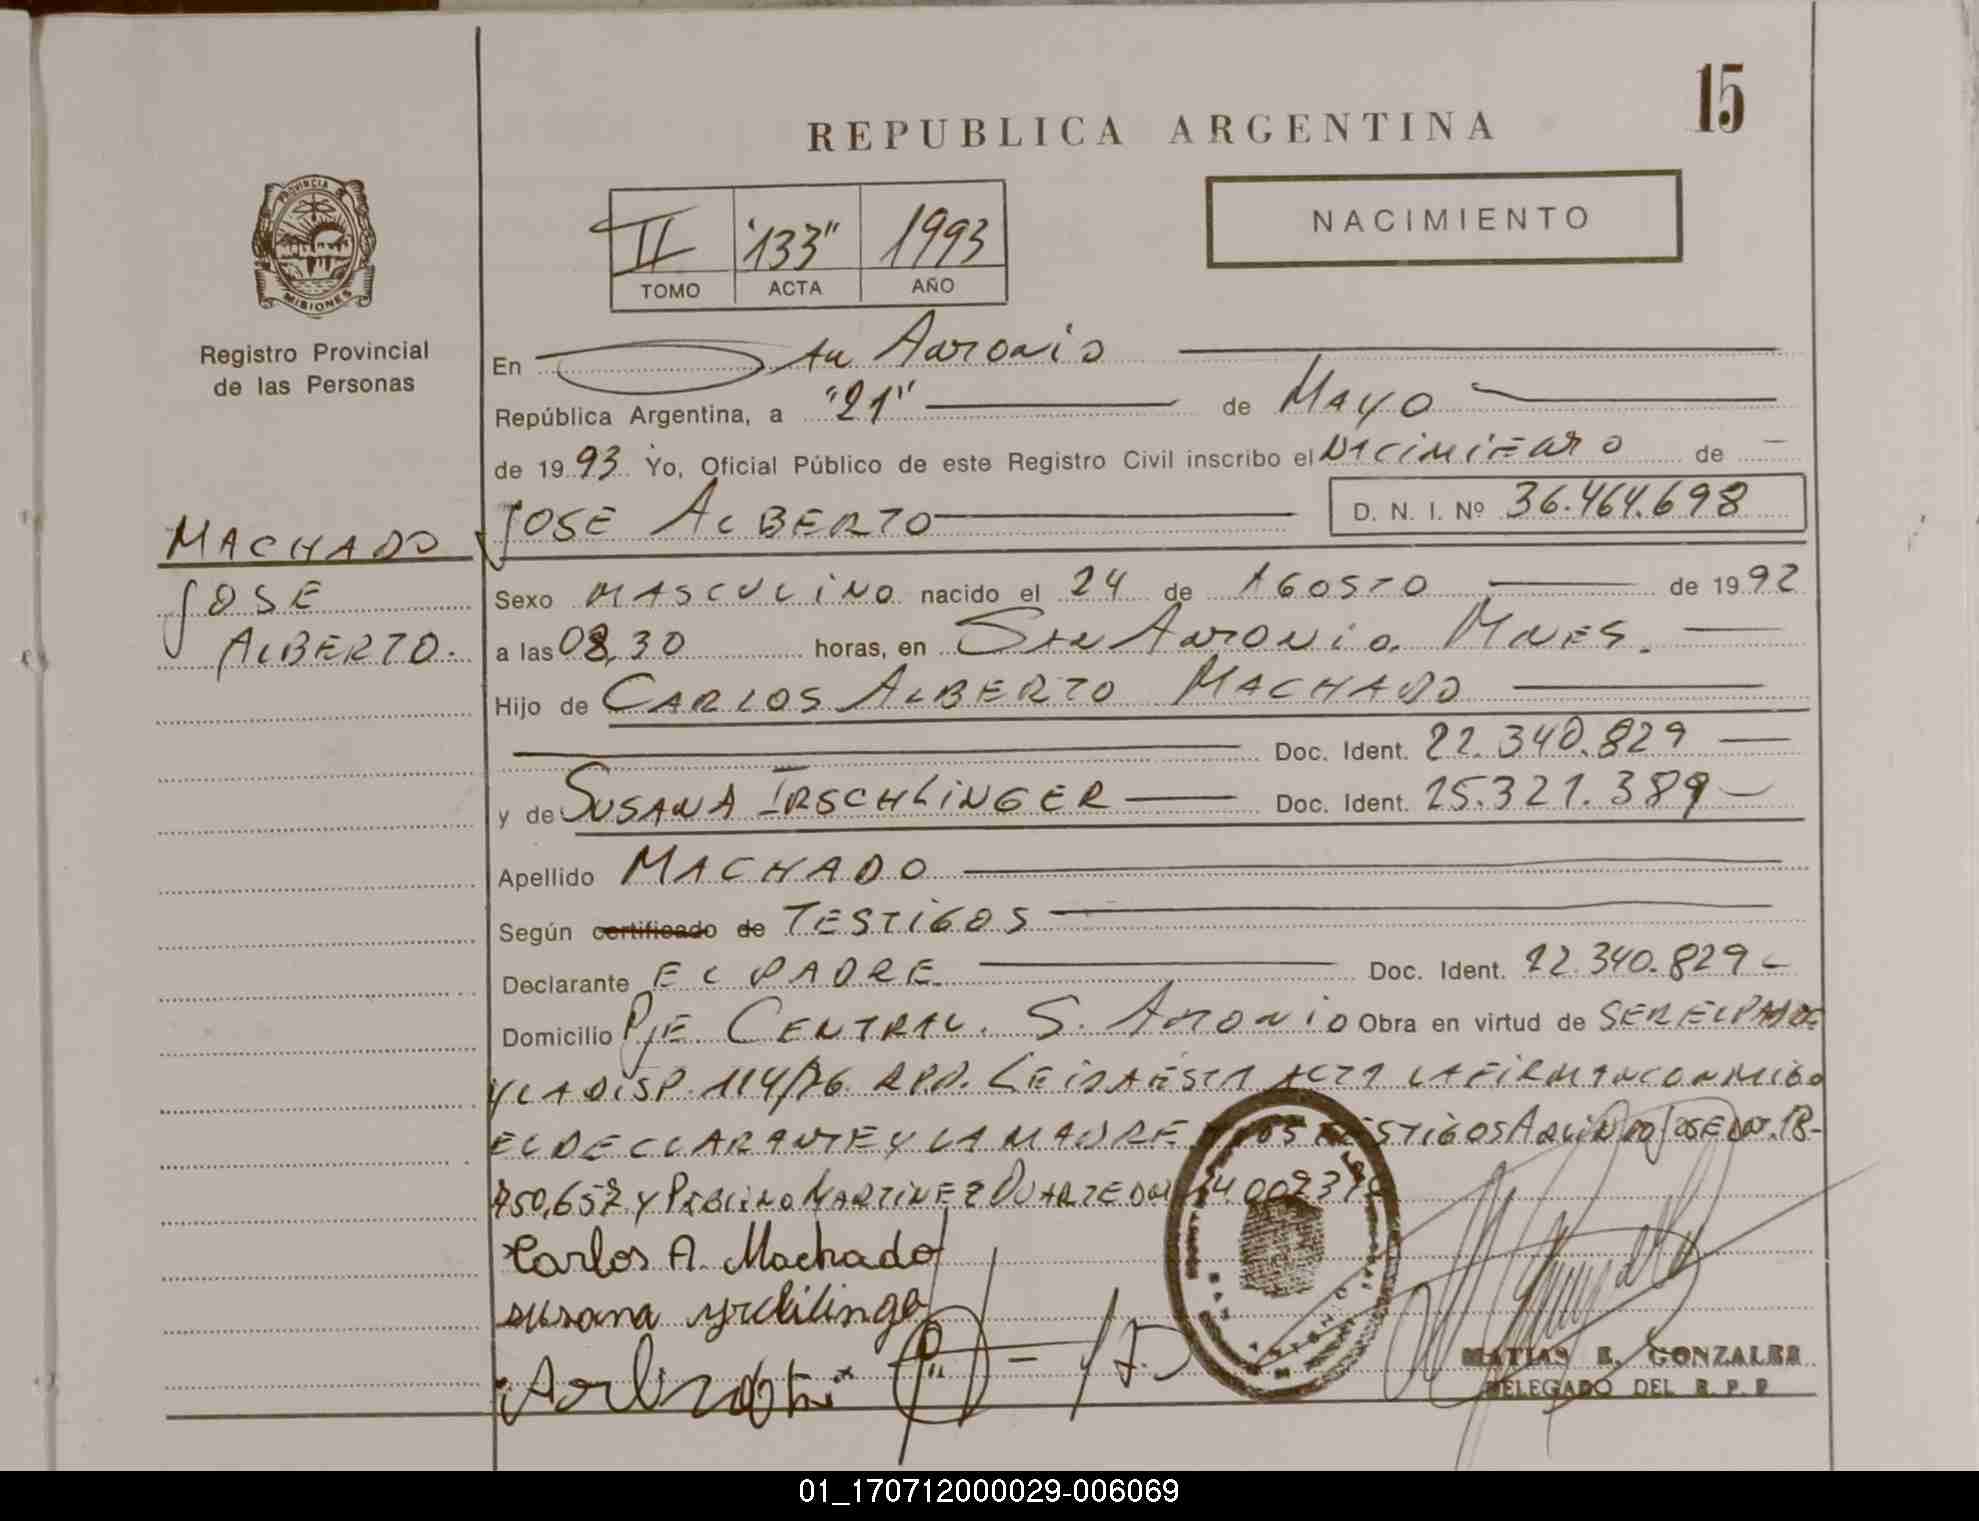 15
REPUBLICA ARGENTINA
NACIMIENTO
II "133" 1993
TOMO ACTA AÑO
PROVINCIA DE
MISIONES
Registro Provincial
de las Personas
MACHADO
JOSE
ALBERTO.
En San Antonio
República Argentina, a "21" de MAYO
de 1993 Yo, Oficial Público de este Registro Civil inscribo el NACIMIENTO de
JOSE ALBERTO D. N. I. Nº 36.464.698
Sexo MASCULINO nacido el 24 de AGOSTO de 1992
a las 08,30 horas, en SAN ANTONIO. MNES.
Hijo de CARLOS ALBERTO MACHADO
Doc. Ident. 22.340.829
y de SUSANA IRSCHLINGER Doc. Ident. 25.321.389
Apellido MACHADO
Según certificado de TESTIGOS
Declarante EL PADRE Doc. Ident. 22.340.829
Domicilio PJE CENTRAL. S. ANTONIO Obra en virtud de SER EL PADRE
Y LA DISP. 114/76. RPP. LEIDA ESTA ACTA LA FIRMAN CONMIGO
EL DECLARANTE Y LA MADRE TESTIGOS JOSE 18-
Y MARTINEZ DUARTE
Carlos A. Machado
susana
MATIAS E. GONZALEZ
DELEGADO DEL R. P. P
01_170712000029-006069